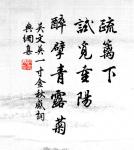 疏籬下
試覓重陽
醉擘青露菊
吳文英一寸金秋感詞
興國集